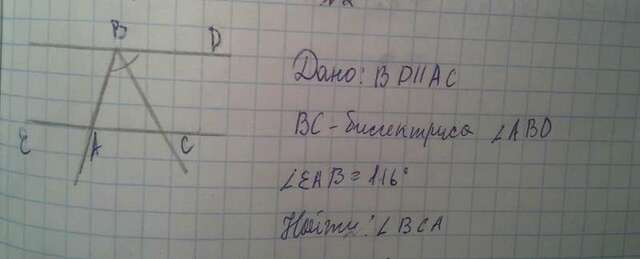 B D
E A C
Дано: BD||AC
BC - биссектриса ∠ABD
∠EAB = 116°
Найти: ∠BCA